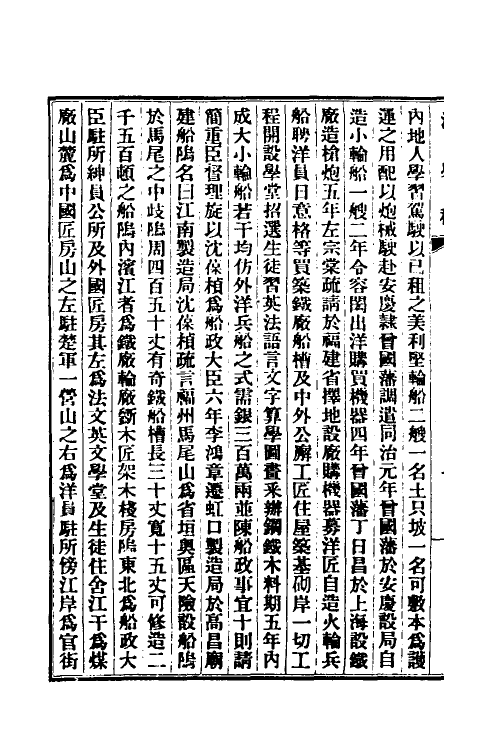 內地人學習駕駛以已租之美利堅輪船二艘一名土只坡一名可敷本爲護
運之用配以炮械駛赴安慶隸曾國藩調遣同治元年曾國藩於安慶設局自
造小輪船一艘二年令容閎出洋購買機器四年曾國藩丁日昌於上海設鐵
廠造槍炮五年左宗棠疏請於福建省擇地設廠購機器募洋匠自造火輪兵
船聘洋員日意格等買築鐵廠船槽及中外公廨工匠住屋築基砌岸一切工
程開設學堂招選生徒習英法語言文字算學圖畫釆辦鋼鐵木料期五年內
成大小輪船若干均仿外洋兵船之式需銀三百萬兩並陳船政事宜十則請
簡重臣督理旋以沈葆楨爲船政大臣六年李鴻章遷虹口製造局於高昌廟
建船隖名曰江南製造局沈葆楨疏言福州馬尾山爲省垣奧區天險設船隖
於馬尾之中歧隖周四百五十丈有奇鐵船槽長三十丈寬十五丈可修造二
千五百頓之船隖內濱江者爲鐵廠輪廠斵木匠架木棧房隖東北爲船政大
臣駐所紳員公所及外國匠房其左爲法文英文學堂及生徒住舍江干爲煤
廠山麓爲中國匠房山之左駐楚軍一營山之右爲洋員駐所傍江岸爲官街